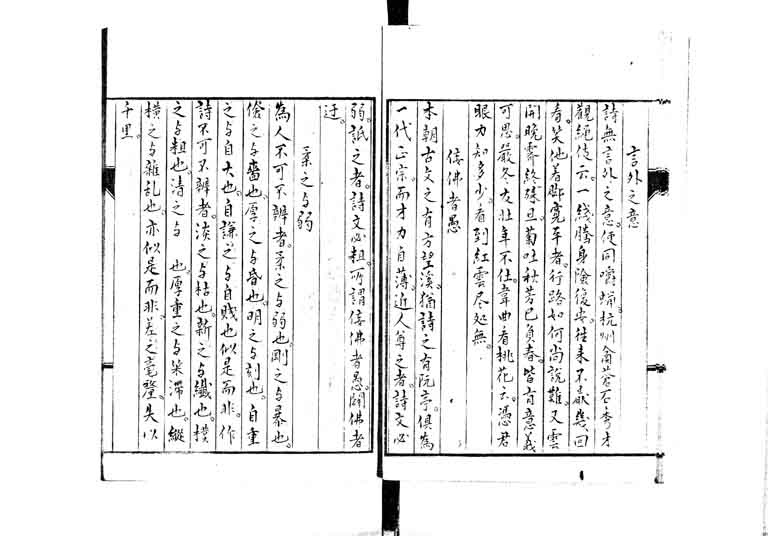 言外之意
詩無言外之意。便同嚼蠟。杭州俞蒼石秀才
觀繩伎云。一綫騰身險復安。往來不厭幾回
看。笑他着腳寬平者。行路如何尚說難。又雲
開晚霽終殊旦。菊吐秋芳已負春。皆有意義
可思。嚴冬友壯年不仕。韋曲看桃花云。憑君
眼力知多少。看到紅雲尽処無。
佞佛者愚
本朝古文之有方望溪。猶詩之有阮亭。俱為
一代正宗。而才力自薄。近人尊之者。詩文必
弱。詆之者。詩文必粗。所謂佞佛者愚。闢佛者
迂。
柔之与弱
為人不可不辨者。柔之与弱也。剛之与暴也。
儉之与嗇也。厚之与昏也。明之与刻也。自重
之与自大也。自謙之与自賤也。似是而非。作
詩不可不辨者。淡之与枯也。新之与纖也。樸
之与粗也。清之与 也。厚重之与笨滯也。縱
橫之与雜乱也。亦似是而非。差之毫釐。失以
千里。